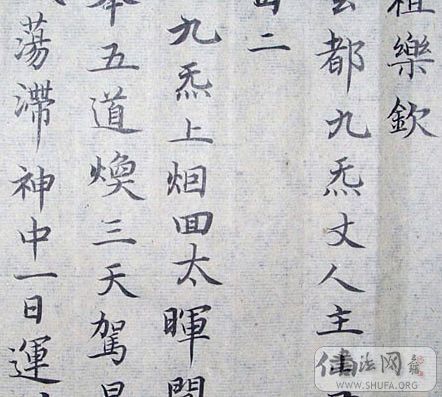 祖樂欽
都九炁丈人主
二
九炁上烟囬太暉
五道煥三天駕
蕩滯神中一日運
书法网
WWW.SHUFA.ORG